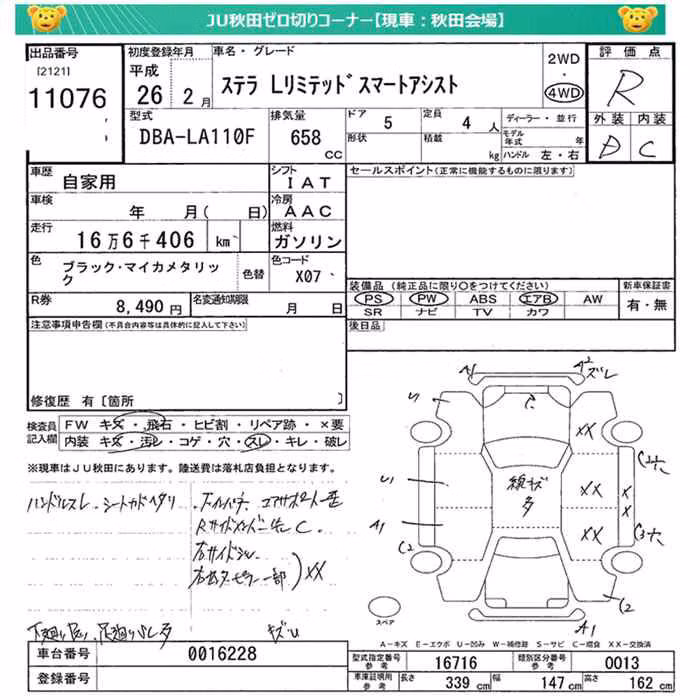 JU秋田ゼロ切りコーナー【現車：秋田会場】
出品番号
[2121]
11076
初度登録年月
平成
26 2月
車名・グレード
ステラ Lリミテッド スマートアシスト
2WD
・
4WD
評価点
R
外装 内装
D C
型式
DBA-LA110F
排気量
658
CC
ドア 5
定員 4 人
形状
積載
kg
ディーラー・並行
モデル年式 年
ハンドル 左・右
車歴
自家用
シフト
IAT
車検
年 月( 日)
冷房
AAC
走行
16万6千406 km
燃料
ガソリン
色
ブラック・マイカメタリック
色替
色コード
X07
R券
8,490円
名変通知期限
月 日
セールスポイント(正常に機能するものに限ります)
装備品 (純正品に限り○をつけてください)
PS PW ABS エアB AW
SR ナビ TV カワ
新車保証書
有・無
後日品
注意事項申告欄(不具合内容等は具体的に記入して下さい)
修復歴 有〔箇所 〕
検査員記入欄
FW キズ・飛石・ヒビ割・リペア跡・×要
内装・キズ・汚レ・コゲ・穴・スレ・キレ・破レ
※現車はJU秋田にあります。陸送費は落札店負担となります。
ハンドルスレ、シートカドヘタリ
右サイドシル
XX
キズU
A1
A2ズレ
U1
C
XX
U1
線キズ
多
XX
XX
X
X
A1
C2
C2穴
C3穴
C2
A1
スペア
A－キズ E－エクボ U－凹み W－補修跡 S－サビ C－腐食 XX－交換済
車台番号
0016228
登録番号
型式指定番号
参考
16716
類別区分番号
参考
0013
車庫証明用
参考
長さ 339 cm
幅 147 cm
高さ 162 cm